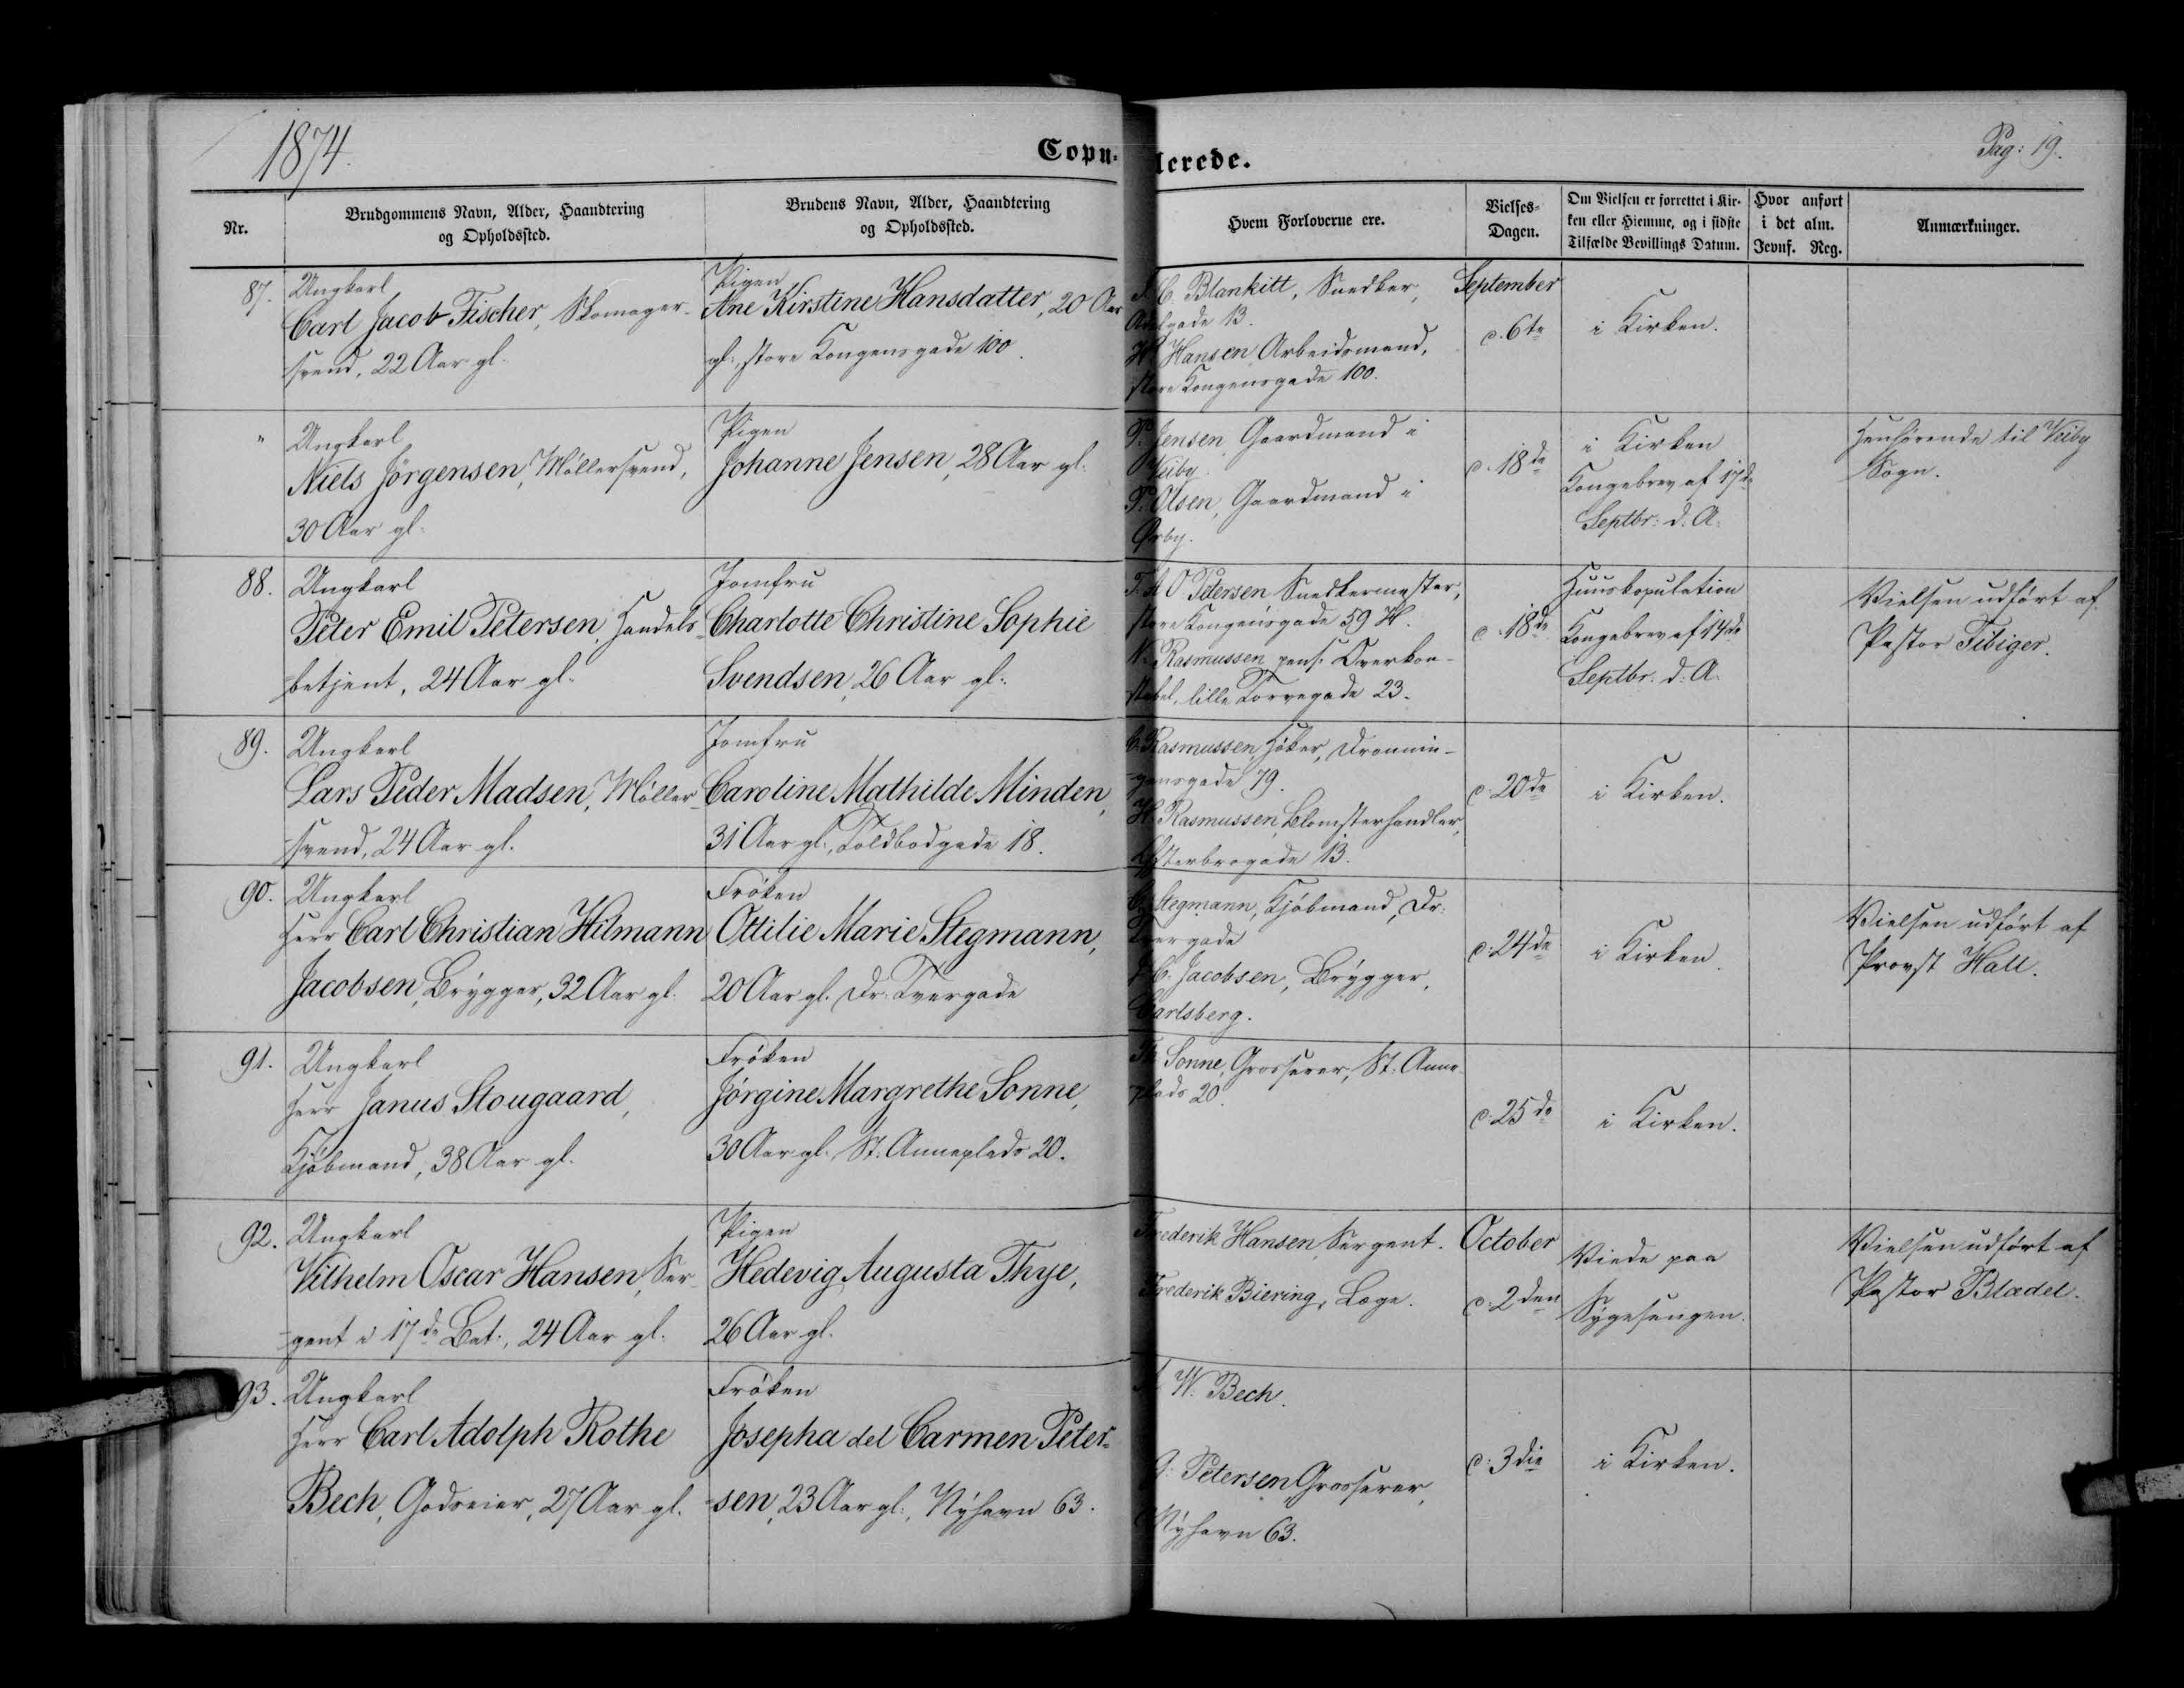 1874.
Copu-
lerede.
Pag: 19.
Nr.
Brudgommens Navn, Alder, Haandtering
og Opholdssted.
Brudens Navn, Alder, Haandtering
og Opholdssted.
Hvem Forloverne ere.
Vielses-
Dagen.
Om Vielsen er forrettet i Kir-
ken eller Hjemme, og i sidste
Tilfælde Bevillings Datum.
Hvor anfort
i det alm.
Jevnf. Reg.
Anmærkninger.
87.
Ungkarl
Carl Jacob Fischer, Skomager-
svend, 22 Aar gl.
Pigen
Ane Kirstine Hansdatter, 20 Aar
gl., store Kongensgade 100.
C. Blankitt, Snedker,
Adelgade 13.
H. Hansen, Arbeidsmand,
store Kongensgade 100.
September
d. 6te
i Kirken.
"
Ungkarl
Niels Jörgensen, Møllersvend,
30 Aar gl.
Pigen
Johanne Jensen, 28 Aar gl.
P. Jensen, Gaardmand i
Veiby.
P. Olsen, Gaardmand i
Ørby.
d. 18de
i Kirken
Kongebrev af 17de
Septbr. d. A.
Henhørende til Veiby
Sogn.
88.
Ungkarl
Peter Emil Petersen, Handels-
betjent, 24 Aar gl.
Jomfru
Charlotte Christine Sophie
Svendsen, 26 Aar gl.
O. Petersen, Snedkermester,
store Kongensgade 59 H.
N. Rasmussen, pens. Overkon-
stabel, lille Torvegade 23.
d. 18de
Huuskopulation
Kongebrev af 14de
Septbr. d. A.
Vielsen udført af
Pastor Fibiger.
89.
Ungkarl
Lars Peder Madsen, Møller-
svend, 24 Aar gl.
Jomfru
Caroline Mathilde Minden,
31 Aar gl., Toldbodgade 18.
C. Rasmussen, Høker, Dronnin-
gensgade 79.
H. Rasmussen, Blomsterhandler,
Østerbrogade 13.
d. 20de
i Kirken.
90.
Ungkarl
Herr Carl Christian Hilmann
Jacobsen, Brygger, 32 Aar gl.
Frøken
Ottilie Marie Stegmann,
20 Aar gl. Dr: Tvergade
Stegmann, Kjøbmand, Dr:
Tvergade
J. C. Jacobsen, Brygger,
Carlsberg.
d. 24de
i Kirken.
Vielsen udført af
Provst Hall.
91.
Ungkarl
Herr Janus Stougaard,
Kjøbmand, 38 Aar gl.
Frøken
Jørgine Margrethe Sonne,
30 Aar gl., St. Anneplads 20.
Th. Sonne, Grosserer, St. Anne-
plads 20.
d. 25de
i Kirken.
92.
Ungkarl
Vilhelm Oscar Hansen, Ser-
gent i 17de Bat., 24 Aar gl.
Pigen
Hedevig Augusta Thye,
26 Aar gl.
Frederik Hansen, Sergent.
Frederik Biering, Læge.
October
d. 2den
Viede paa
Sygesengen.
Vielsen udført af
Pastor Blædel.
93.
Ungkarl
Herr Carl Adolph Rothe
Bech, Godseier, 27 Aar gl.
Frøken
Josepha del Carmen Peter-
sen, 23 Aar gl., Nyhavn 63.
W. Bech.
Petersen, Grosserer,
Nyhavn 63.
d. 3die
i Kirken.